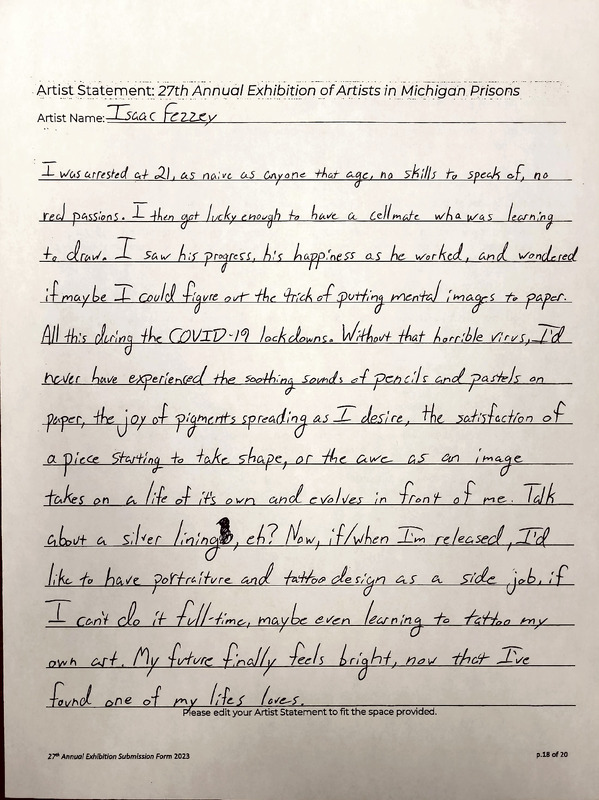 Artist Statement: 27th Annual Exhibition of Artists in Michigan Prisons
Artist Name: Isaac Fezzey
I was arrested at 21, as naive as anyone that age, no skills to speak of, no
real passions. I then got lucky enough to have a cellmate who was learning
to draw. I saw his progress, his happiness as he worked, and wondered
if maybe I could figure out the trick of putting mental images to paper.
All this during the COVID-19 lockdowns. Without that horrible virus, I'd
never have experienced the soothing sounds of pencils and pastels on
paper, the joy of pigments spreading as I desire, the satisfaction of
a piece starting to take shape, or the awe as an image
takes on a life of it's own and evolves in front of me. Talk
about a silver lining, eh? Now, if/when I'm released, I'd
like to have portraiture and tattoo design as a side job, if
I can't do it full-time, maybe even learning to tattoo my
own art. My future finally feels bright, now that I've
found one of my lifes loves.
Please edit your Artist Statement to fit the space provided.
27th Annual Exhibition Submission Form 2023
p.18 of 20